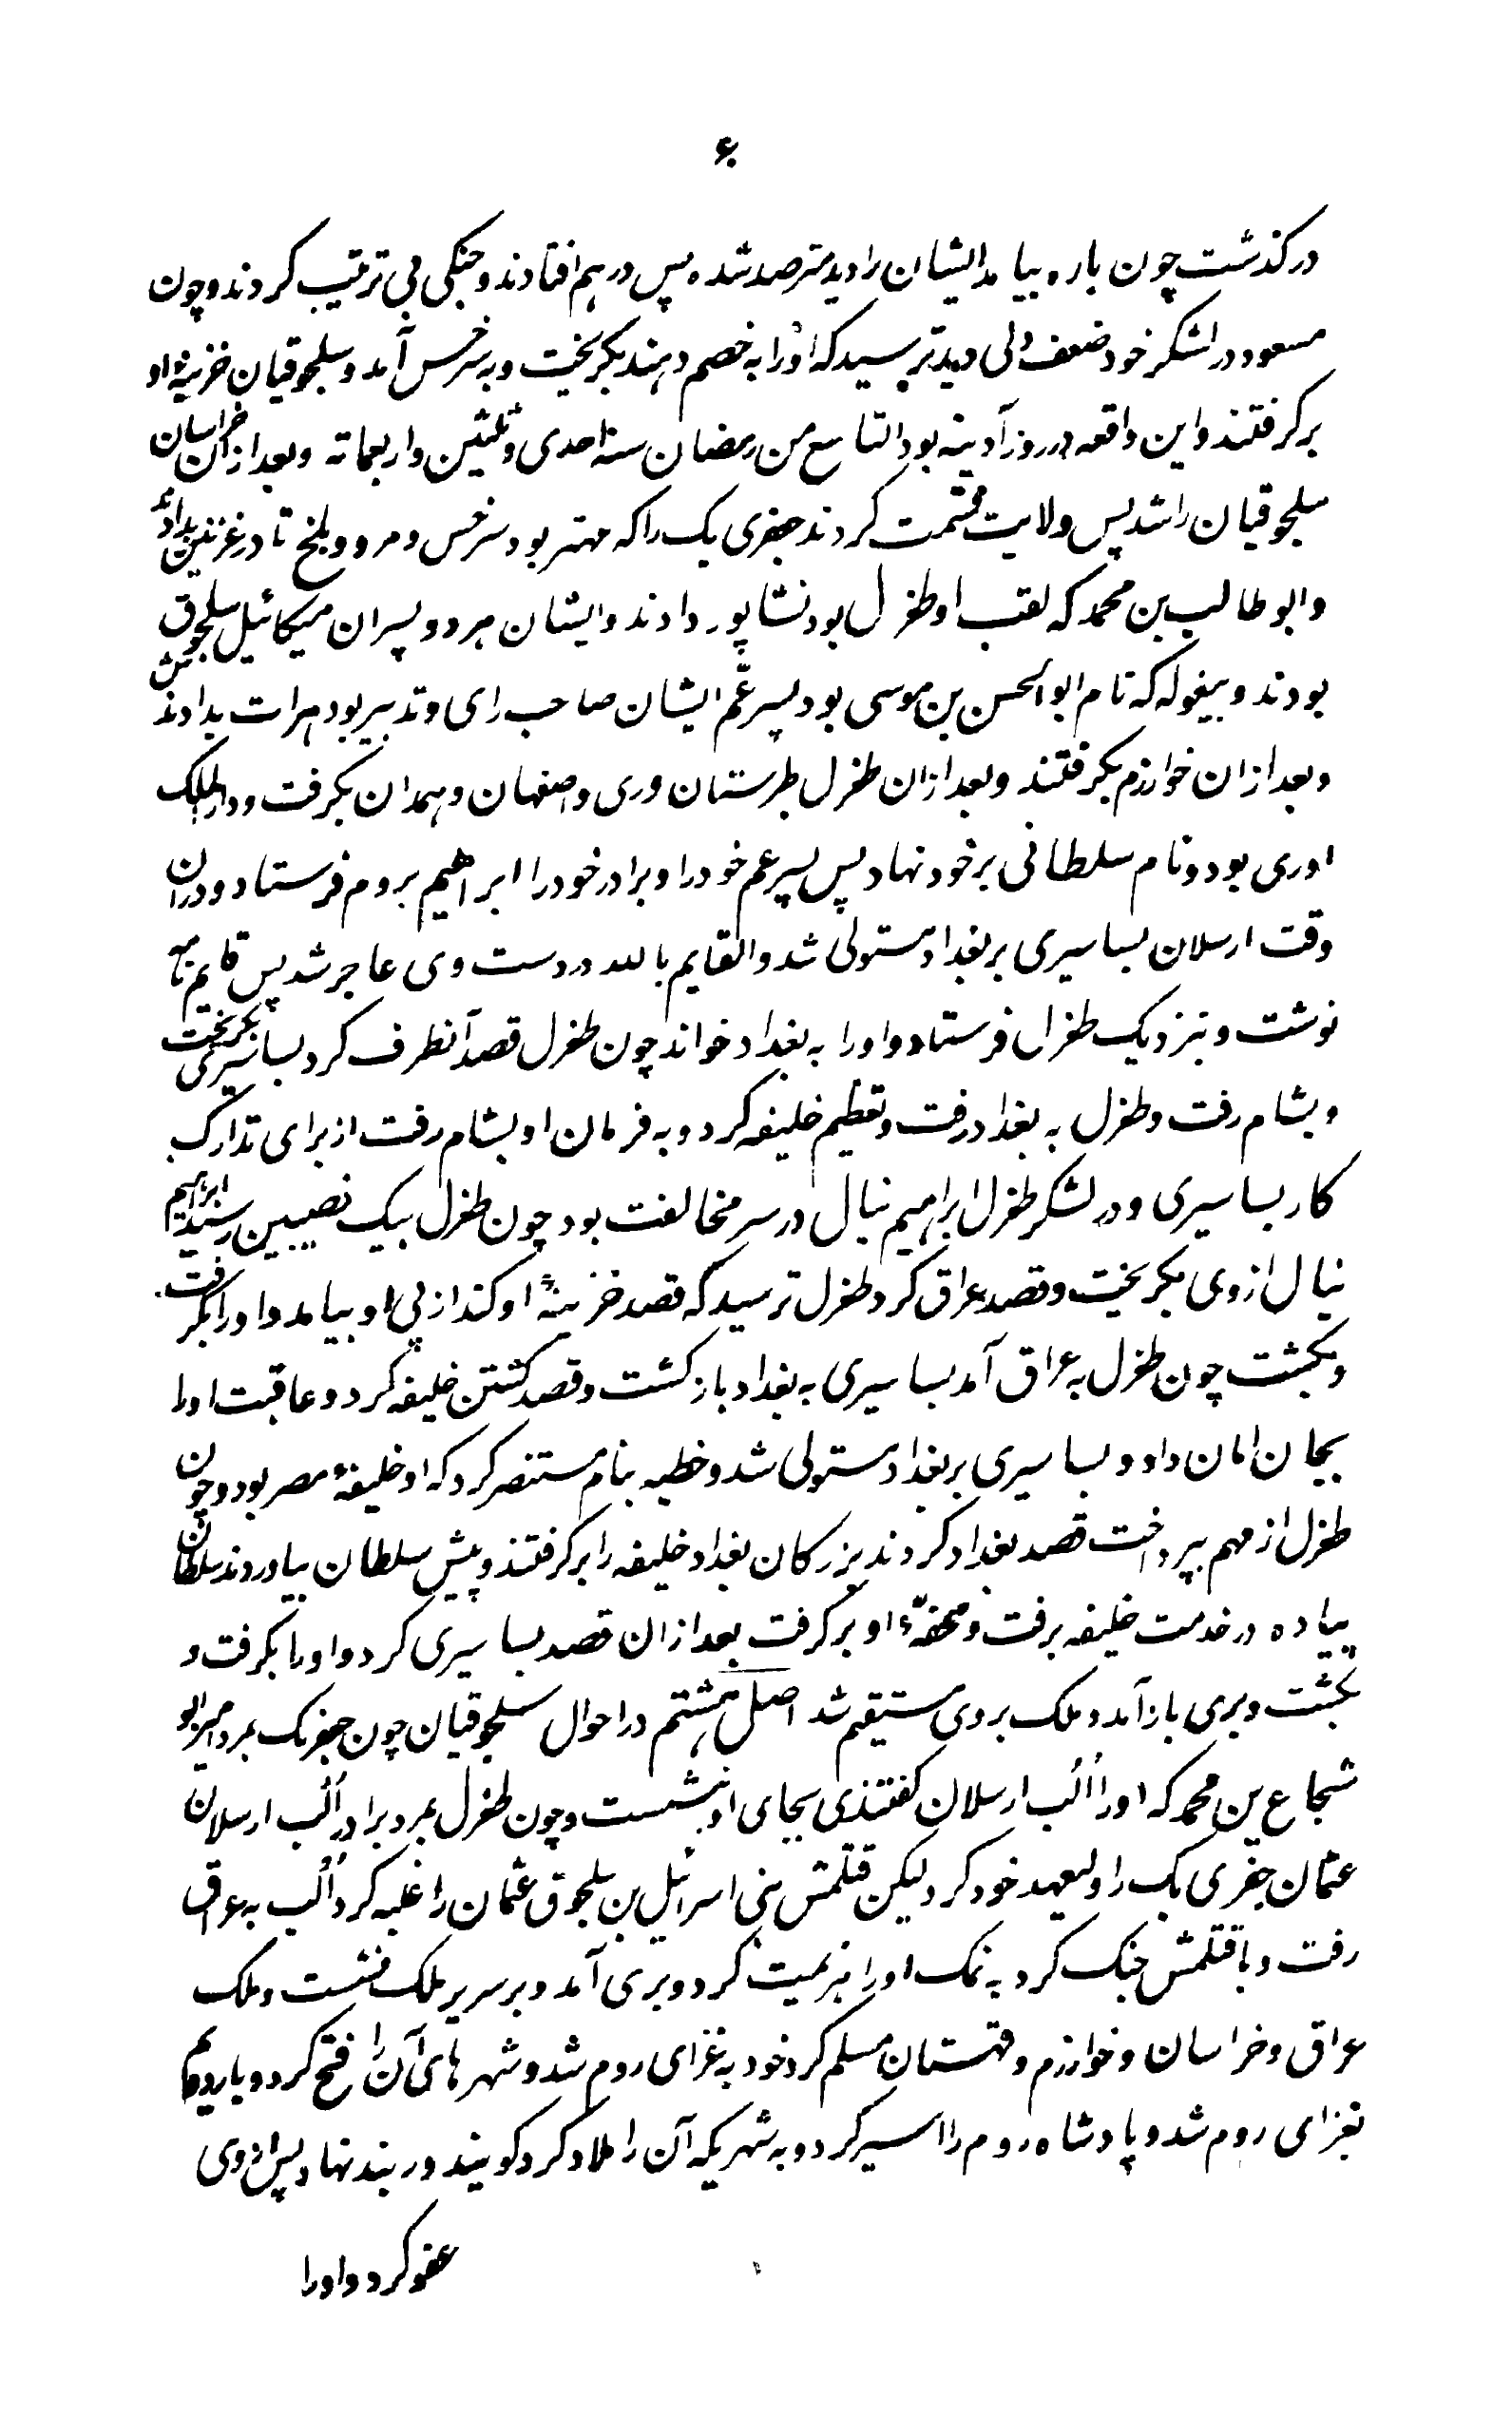 ۶
درگذشت چون باره بیامد ایشان را دید مترصد شده پس در هم افتادند و جنگی بی ترتیب کردند و چون
مسعود در لشکر خود ضعف دلی دید بترسید که او را به خصم دهند بگریخت و به سرخس آمد و سلجوقیان خزینهٔ او
برگرفتند و این واقعه در روز آدینه بود التاسع من رمضان سنه احدی و ثلثین و اربعمائه و بعد از آن خراسان
سلجوقیان را شد پس ولایت قسمت کردند جغری بک را که مهتر بود سرخس و مرو و بلخ تا در غزنین بدادند
و ابوطالب بن محمد که لقب او طغرل بود نشاپور دادند و ایشان هر دو پسران میکائیل سلجوق
بودند و بیغوله که نام ابوالحسن بن موسی بود پسر عم ایشان صاحب رای و تدبیر بود هرات بدادندش
و بعد از ان خوارزم بگرفتند و بعد از ان طغرل طبرستان و ری و اصفهان و همدان بگرفت و دارالملک
او ری بود و نام سلطانی بر خود نهاد پس پسر عم خود را و برادر خود را ابراهیم بروم فرستاد و دران
وقت ارسلان بساسیری بر بغداد مستولی شد و القایم بالله در دست وی عاجز شد پس قایم نامه
نوشت و بنزدیک طغرل فرستاد و او را به بغداد خواند چون طغرل قصد آنطرف کرد بساسیری بگریخت
و بشام رفت و طغرل به بغداد رفت و تعظیم خلیفه کرد و به فرمان او بشام رفت از برای تدارک
کار بساسیری و در لشکر طغرل ابراهیم نیال در سر مخالفت بود چون طغرل بیک نصیبین رسید ابراهیم
نیال از وی بگریخت و قصد عراق کرد طغرل ترسید که قصد خزینهٔ او کند از پی او بیامد و او را بگرفت
و بکشت چون طغرل به عراق آمد بساسیری به بغداد بازگشت و قصد کشتن خلیفه کرد و عاقبت او را
بجان امان داد و بساسیری بر بغداد مستولی شد و خطبه بنام مستنصر کرد که او خلیفهٔ مصر بود و چون
طغرل از مهم بپرداخت قصد بغداد کردند بزرگان بغداد خلیفه را برگرفتند و پیش سلطان بیاوردند سلطان
پیاده در خدمت خلیفه برفت و محفّهٔ او برگرفت بعد از ان قصد بساسیری کرد و او را بگرفت و
بکشت و بری باز آمد و ملک بر وی مستقیم شد اصل هشتم در احوال سلجوقیان چون جغربک بمرد امیر ابو
شجاع بن محمد که او را الب ارسلان گفتندی بجای او بنشست و چون طغرل بمرد برادر الب ارسلان
عثمان جغری بک را ولیعهد خود کرد لیکن قتلمش بنی اسرائیل بن سلجوق عثمان را غلبه کرد الب به عراق
رفت و با قتلمش جنگ کرد به نمک او را هزیمت کرد و بری آمد و بر سریر ملک نشست و ملک
عراق و خراسان و خوارزم و قهستان مسلم کرد خود به غزای روم شد و شهرهای آن را فتح کرد و بار دویم
بغزای روم شد و پادشاه روم را اسیر کرد و به شهریکه آن را ملاد کرد گویند در بند نهاد پس از وی
عفو کرد و او را